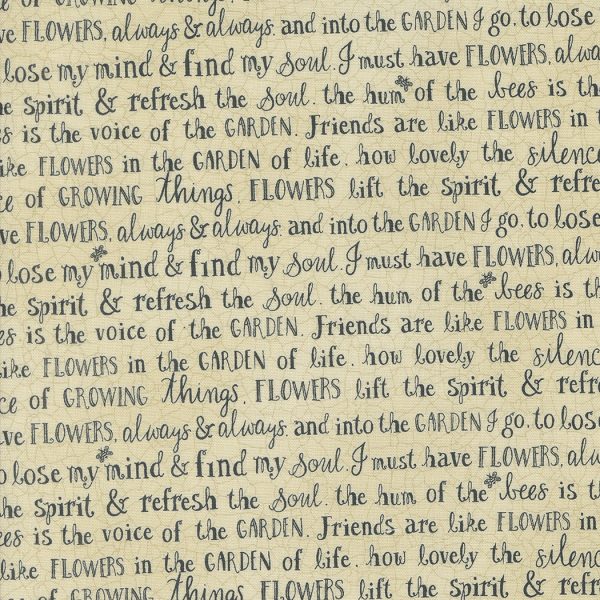 of GROWING
FLOWERS, always & always. and into the GARDEN I go, to lose
lose my mind & find my Soul. I must have FLOWERS, alwa
he spirit & refresh the Soul. the hum of the bees is the
is the voice of the GARDEN. Friends are like FLOWERS in
like FLOWERS in the GARDEN of life. how lovely the silence
ce of GROWING things. FLOWERS lift the spirit & refre
ve FLOWERS, always & always. and into the GARDEN I go, to lose
o lose my mind & find my Soul. I must have FLOWERS, alwa
the spirit & refresh the Soul. the hum of the bees is th
es is the voice of the GARDEN. Friends are like FLOWERS in
like FLOWERS in the GARDEN of life. how lovely the silenc
ce of GROWING things. FLOWERS lift the spirit & refr
ve FLOWERS, always & always. and into the GARDEN I go, to lose
o lose my mind & find my Soul. I must have FLOWERS, alw
the spirit & refresh the Soul. the hum of the bees is t
ees is the voice of the GARDEN. Friends are like FLOWERS in
like FLOWERS in the GARDEN of life. how lovely the silenc
of GROWING things. FLOWERS lift the spirit & refr